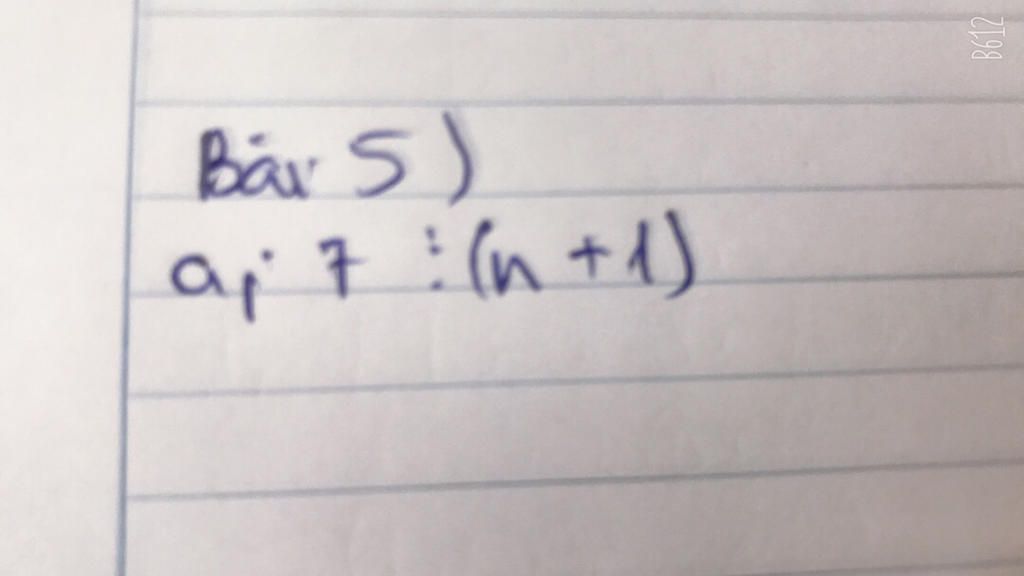 Bài 5)
a; 7 ⋮ (n + 1)
B612